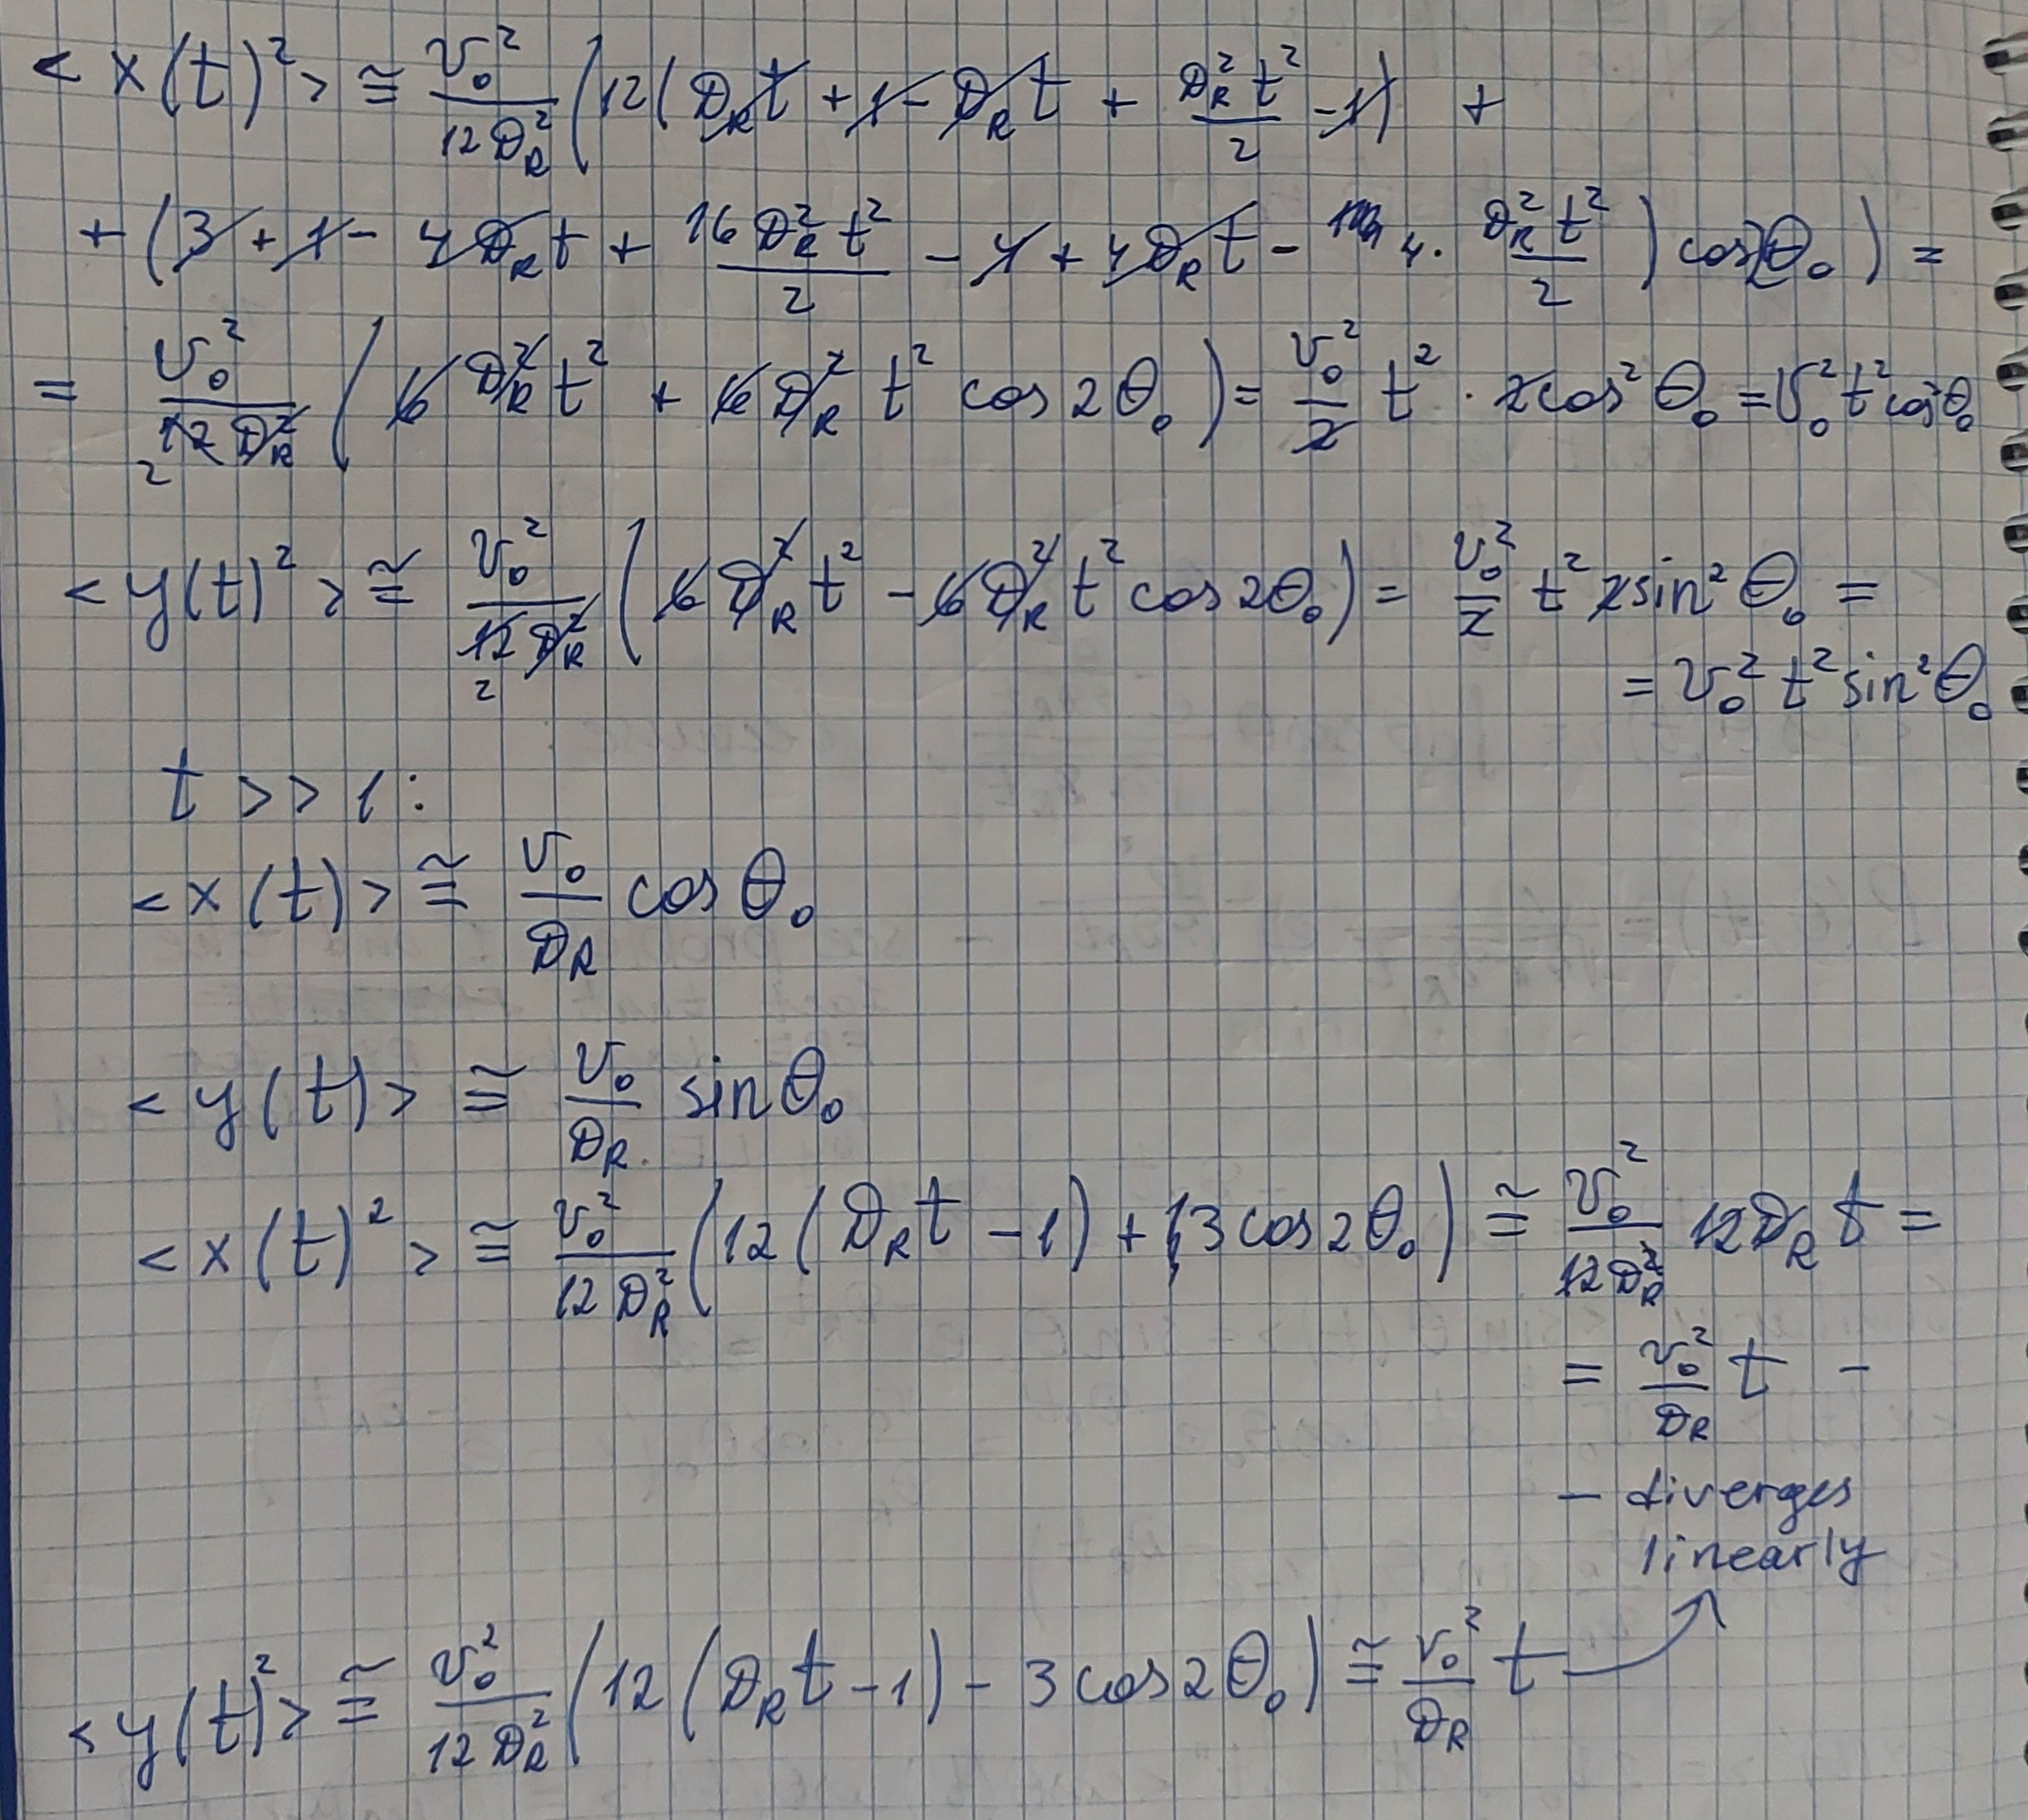 < x(t)² > ≅ v₀²/(12 D_R²) (12(D_R t + 1 - D_R t + D_R² t²/2 - 1) +
+ (3 + 1 - 4 D_R t + 16 D_R² t²/2 - 4 + 4 D_R t - 4 · D_R² t²/2) cos 2θ₀) =
= v₀²/(12 D_R²) (6 D_R² t² + 6 D_R² t² cos 2θ₀) = v₀²/2 t² · 2cos² θ₀ = v₀² t² cos² θ₀
< y(t)² > ≅ v₀²/(12 D_R²) (6 D_R² t² - 6 D_R² t² cos 2θ₀) = v₀²/2 t² 2sin² θ₀ =
= v₀² t² sin² θ₀
t >> 1 :
< x(t) > ≅ v₀/D_R cos θ₀
< y(t) > ≅ v₀/D_R sin θ₀
< x(t)² > ≅ v₀²/(12 D_R²) (12(D_R t - 1) + 3 cos 2θ₀) ≅ v₀²/(12 D_R²) 12 D_R t =
= v₀²/D_R t -
- diverges
linearly
< y(t)² > ≅ v₀²/(12 D_R²) (12(D_R t - 1) - 3 cos 2θ₀) ≅ v₀²/D_R t